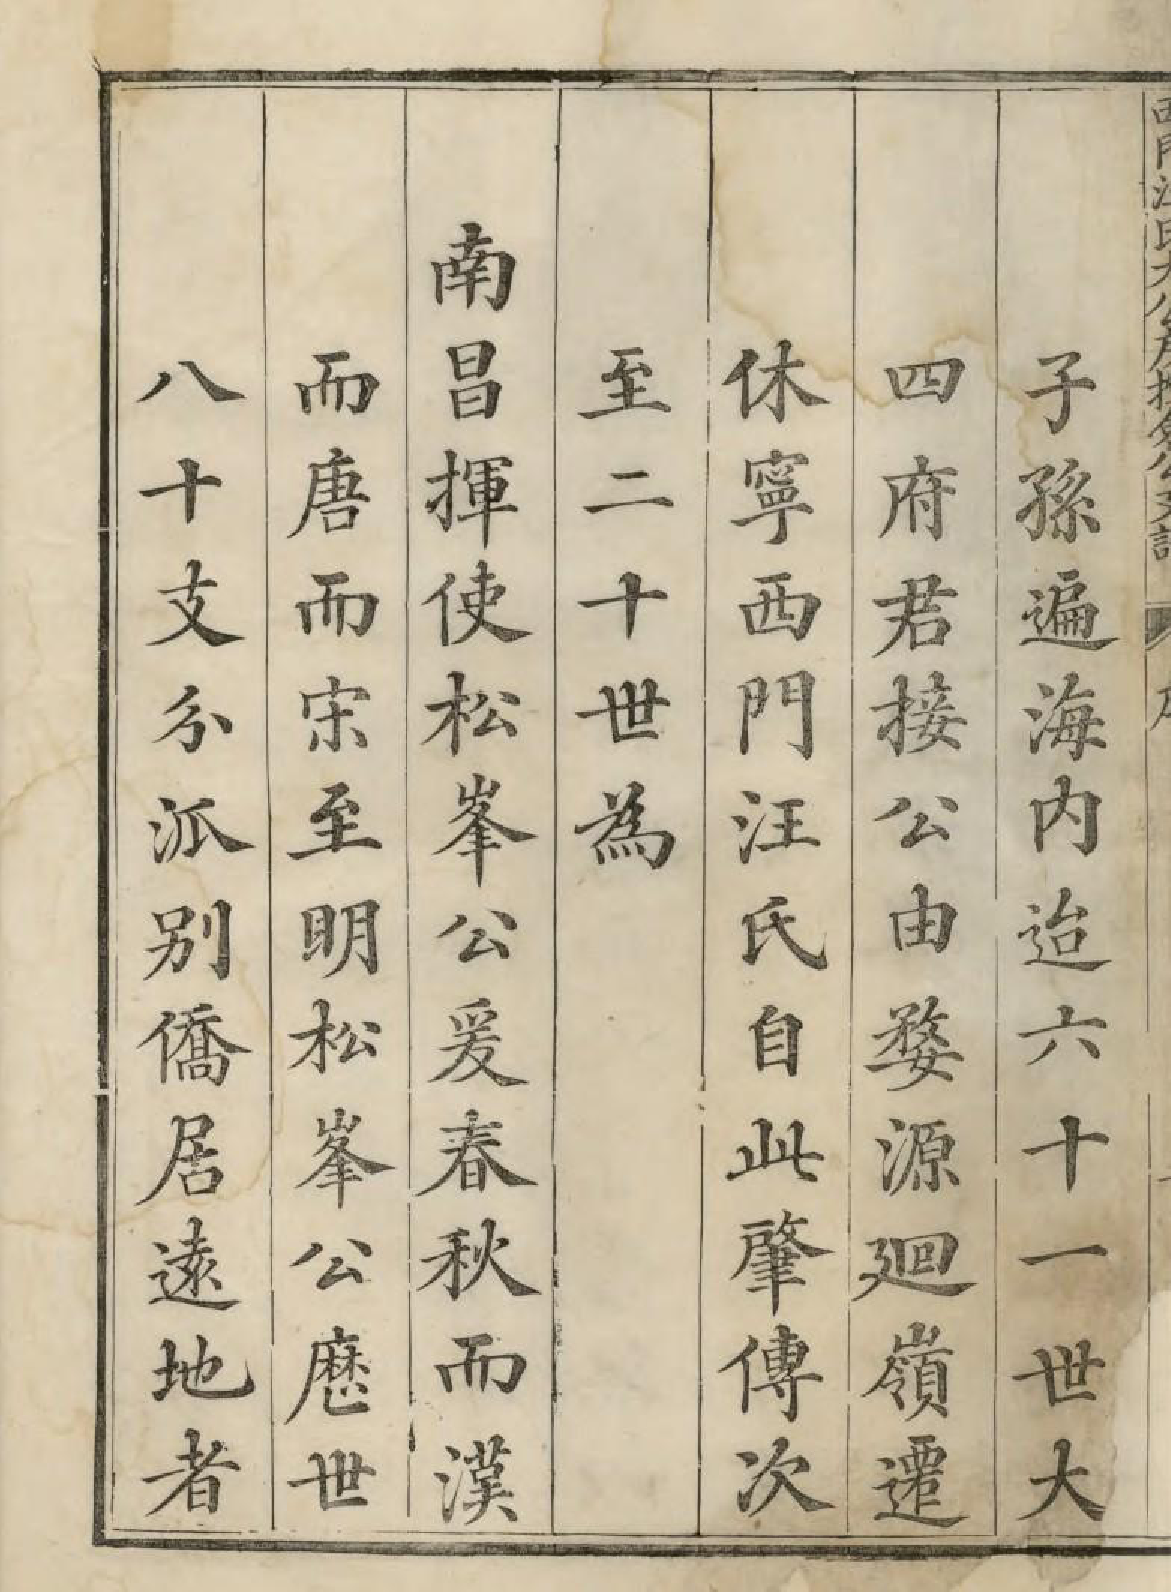 子孫遍海内迨六十一世大
四府君接公由婺源廻嶺遷
休寧西門汪氏自此肇傳次
至二十世為
南昌揮使松峯公爰春秋而漢
而唐而宋至明松峯公歷世
八十支分派别僑居遠地者